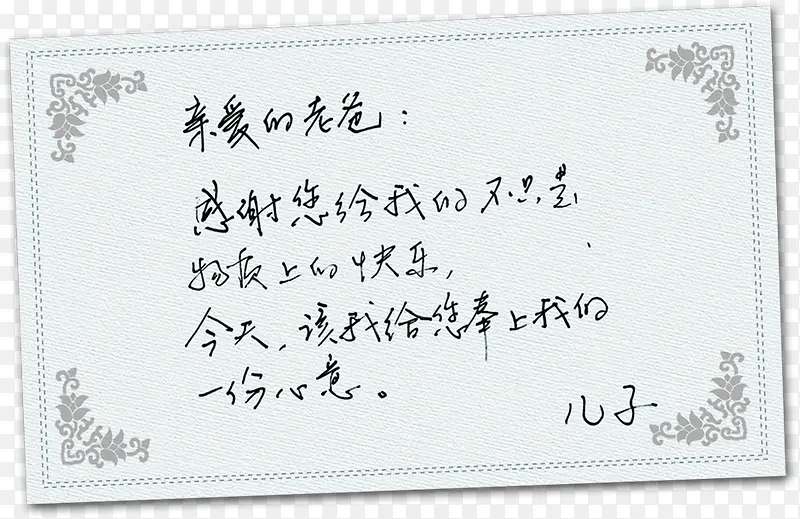 亲爱的老爸：
感谢您给我的不只是
物质上的快乐，
今天，该我给您奉上我的
一份心意。
儿子